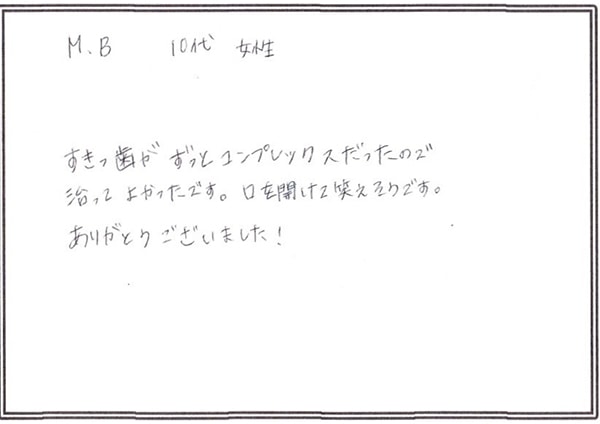 M.B 10代 女性
すきっ歯が ずっと コンプレックスだったので
治って よかったです。口を開けて笑えそうです。
ありがとう ございました!